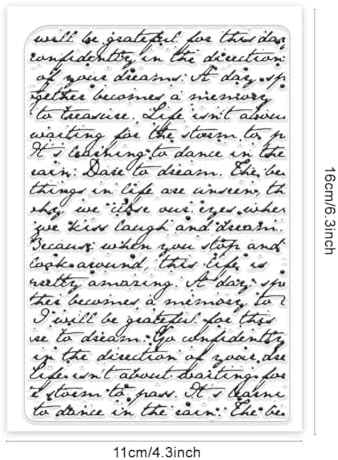 will be grateful for this day
confidently in the direction
of your dreams. A day sp
ogether becomes a memory
to treasure. Life isn't about
waiting for the storm to p
It's learning to dance in the
rain. Dare to dream. The be
things in life are unseen, th
why we close our eyes when
we kiss laugh and dream.
Because when you stop and
look around, this life is
pretty amazing. A day spe
ther becomes a memory to
I will be grateful for this
re to dream. Go confidently
in the direction of your dre
life isn't about waiting for
e storm to pass. It's learni
to dance in the rain. The be
16cm/6.3inch
11cm/4.3inch